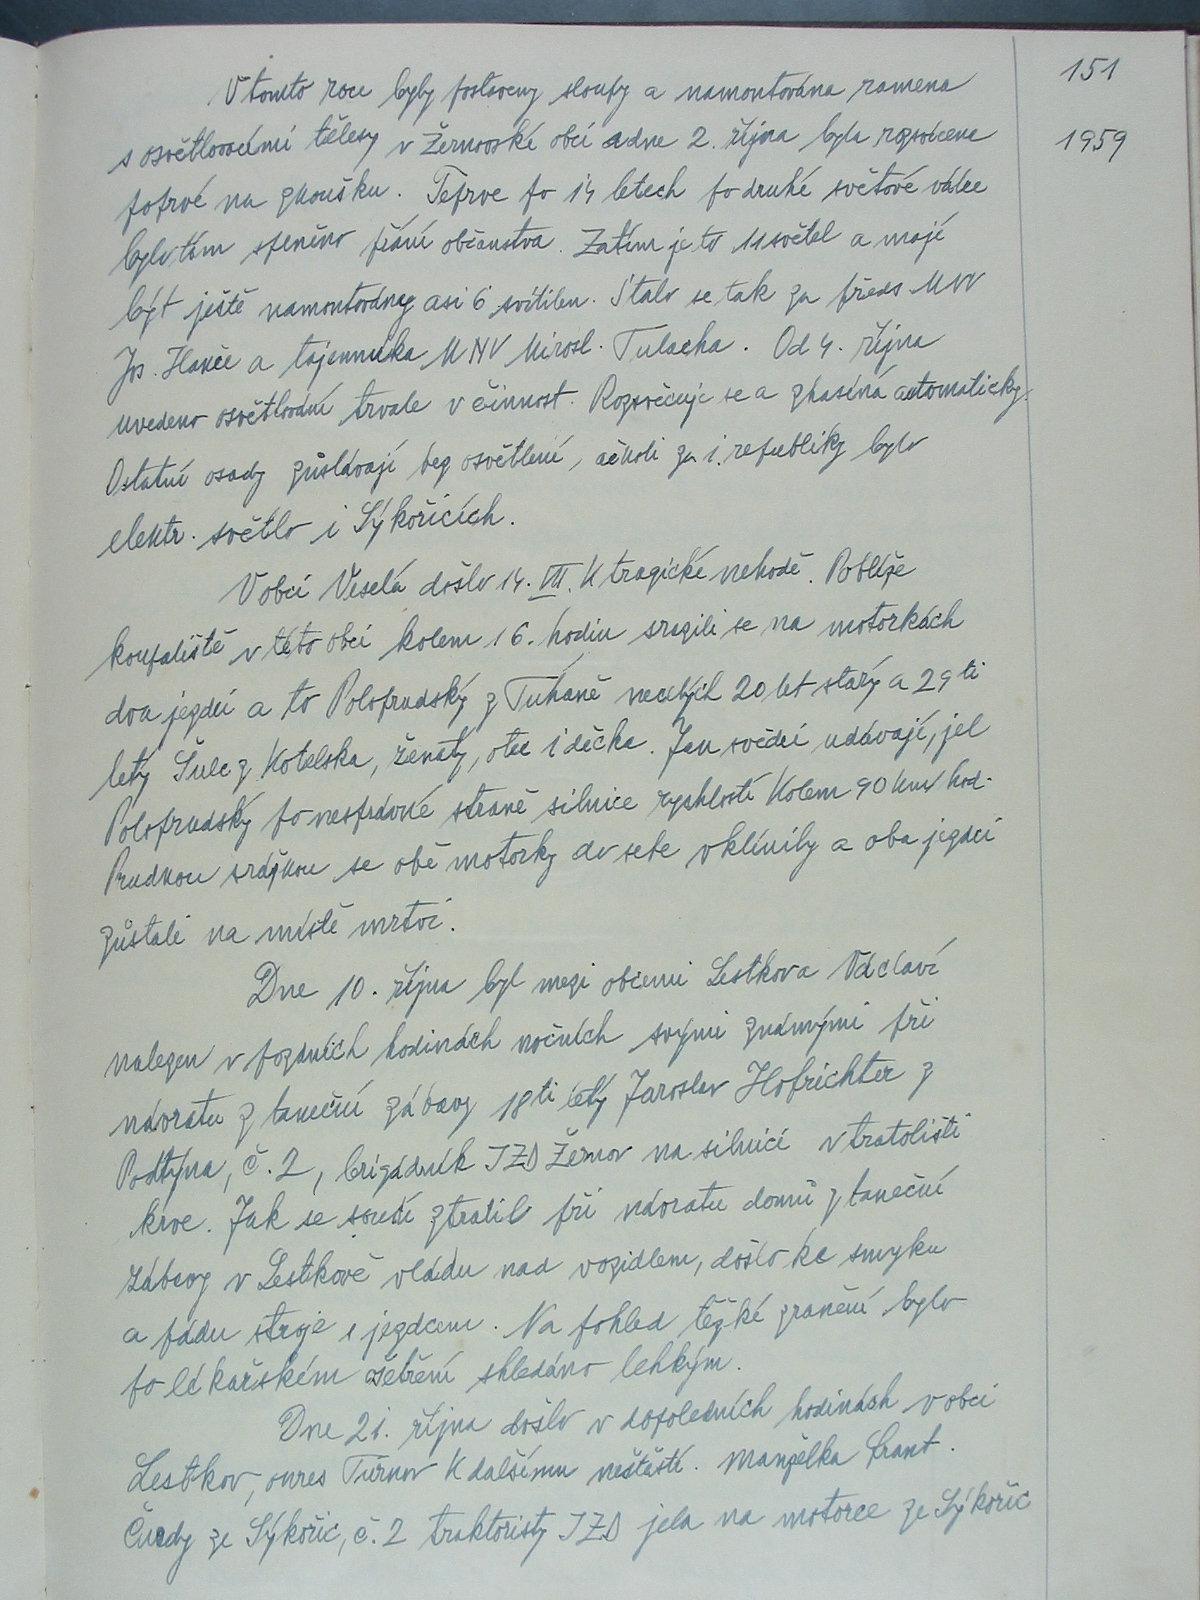 151
1959
V tomto roce byly postaveny sloupy a namontována ramena
s osvětlovacími tělesy v Žernovské obci a dne 2. října byla rozsvícena
poprvé na zkoušku. Teprve po 14 letech po druhé světové válce
bylo tím splněno přání občanstva. Zatím je to 11 světel a mají
být ještě namontovány asi 6 svítilen. Stalo se tak za předs. MNV
Jos. Hlaváče a tajemníka MNV Mirosl. Tulacha. Od 4. října
uvedeno osvětlování trvale v činnost. Rozsvěcuje se a zhasíná automaticky.
Ostatní osady zůstávají bez osvětlení, ačkoli za 1. republiky bylo
elektr. světlo i Sýkořicích.
V obci Veselá došlo 14. VII. k tragické nehodě. Poblíže
koupaliště v této obci kolem 16. hodin srazili se na motorkách
dva jezdci a to Poloprudský z Tuháně necelých 20 let starý a 29 ti
letý Šulc z Kotelska, ženatý, otec 1 děcka. Jak svědci udávají, jel
Poloprudský po nesprávné straně silnice rychlostí kolem 90 km/hod.
Prudkou srážkou se obě motorky do sebe vklínily a oba jezdci
zůstali na místě mrtví.
Dne 10. října byl mezi obcemi Lestkova Václaví
nalezen v pozdních hodinách nočních svými známými při
návratu z taneční zábavy 18ti letý Jaroslav Hofrichter z
Podtýna, č. 2, brigádník JZD Žernov na silnici v tratolišti
krve. Jak se soudí ztratil při návratu domů z taneční
zábavy v Lestkově vládu nad vozidlem, došlo ke smyku
a pádu stroje s jezdcem. Na pohled těžké zranění bylo
po lékařském ošetření shledáno lehkým.
Dne 21. října došlo v dopoledních hodinách v obci
Lestkov, okres Turnov k dalšímu neštěstí. Manželka Frant.
Čudy ze Sýkořic, č. 2 traktoristy JZD jela na motorce ze Sýkořic